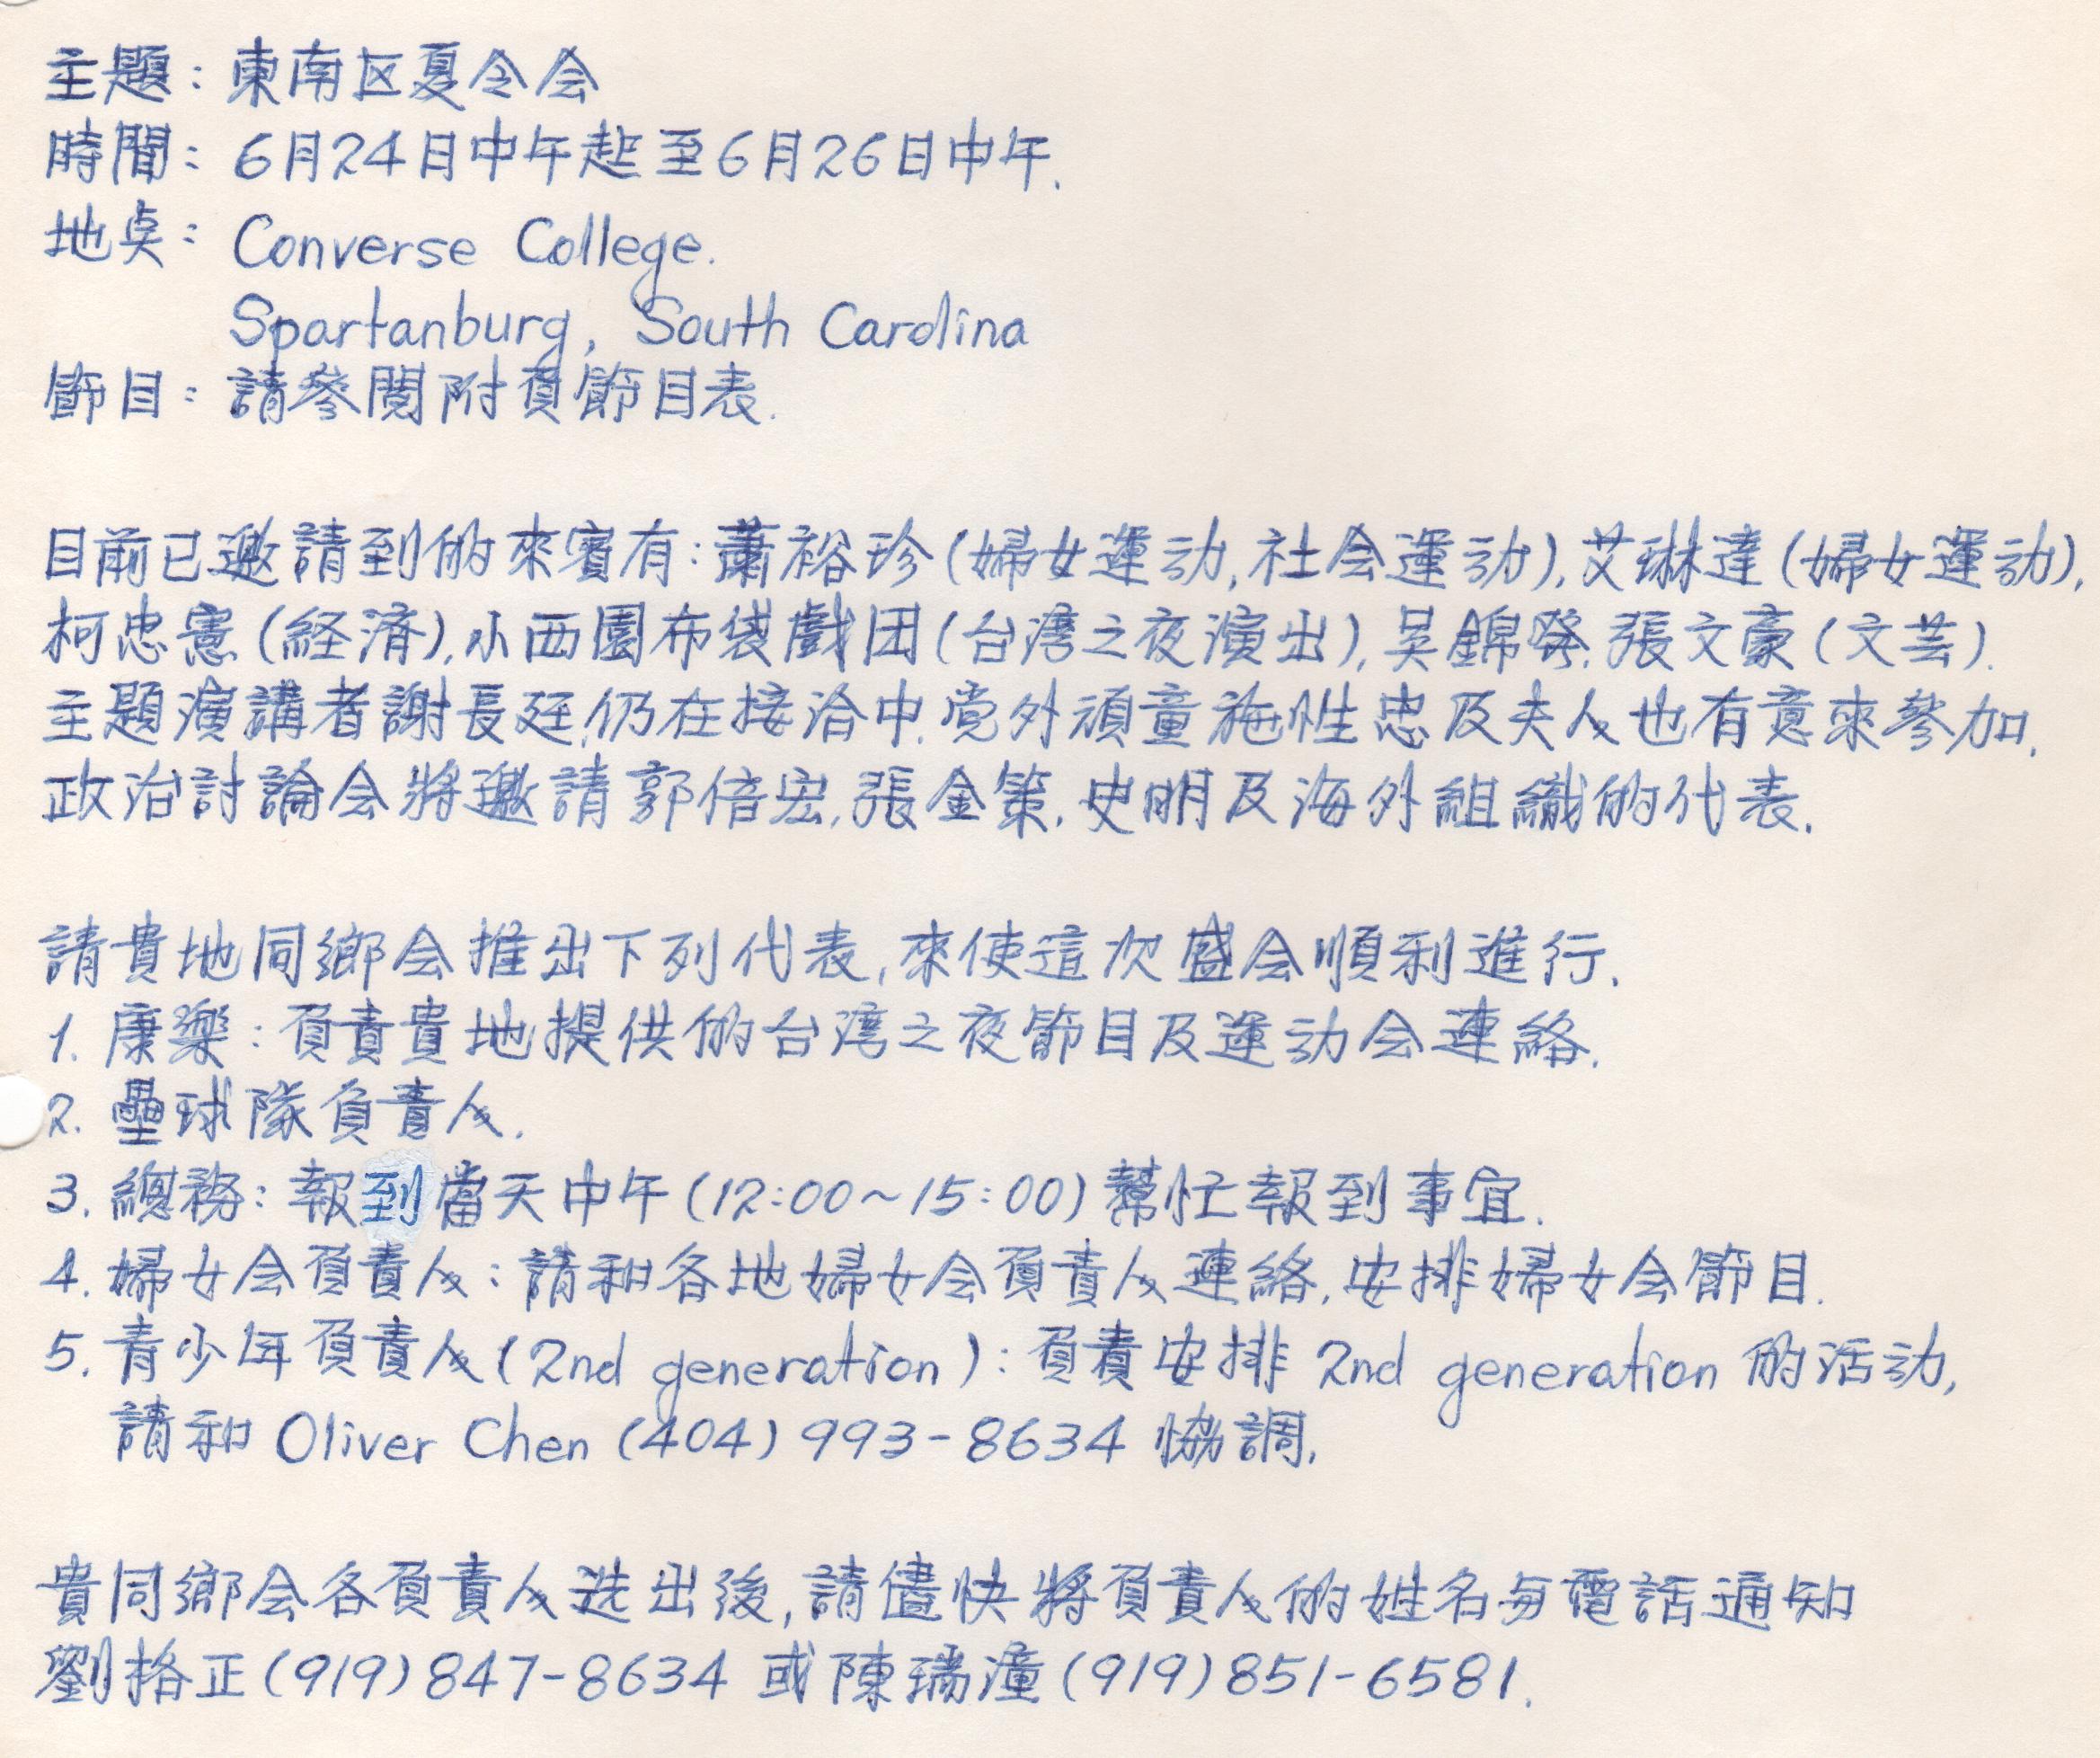 主題: 東南区夏令会
時間: 6月24日中午起至6月26日中午.
地奌: Converse College.
Spartanburg, South Carolina
節目: 請參閱附頁節目表.
目前已邀請到的來賓有: 蕭裕珍(婦女運动,社会運动),艾琳達(婦女運动),
柯忠憲(経済),小西園布袋戲团(台湾之夜演出),吳錦發,張文豪(文芸).
主題演講者謝長廷,仍在接洽中,党外頑童施性忠及夫人也有意來參加.
政治討論会將邀請郭倍宏,張金策,史明及海外組織的代表.
請貴地同鄉会推出下列代表,來使這次盛会順利進行.
1. 康樂: 負責貴地提供的台湾之夜節目及運动会連絡.
2. 壘球隊負責人.
3. 總務: 報到當天中午(12:00~15:00)幫忙報到事宜.
4. 婦女会負責人: 請和各地婦女会負責人連絡,安排婦女会節目.
5. 青少年負責人(2nd generation): 負責安排 2nd generation 的活动,
請和 Oliver Chen (404) 993-8634 協調.
貴同鄉会各負責人选出後,請儘快將負責人的姓名与電話通知
劉格正(919)847-8634 或陳瑞潼(919)851-6581.